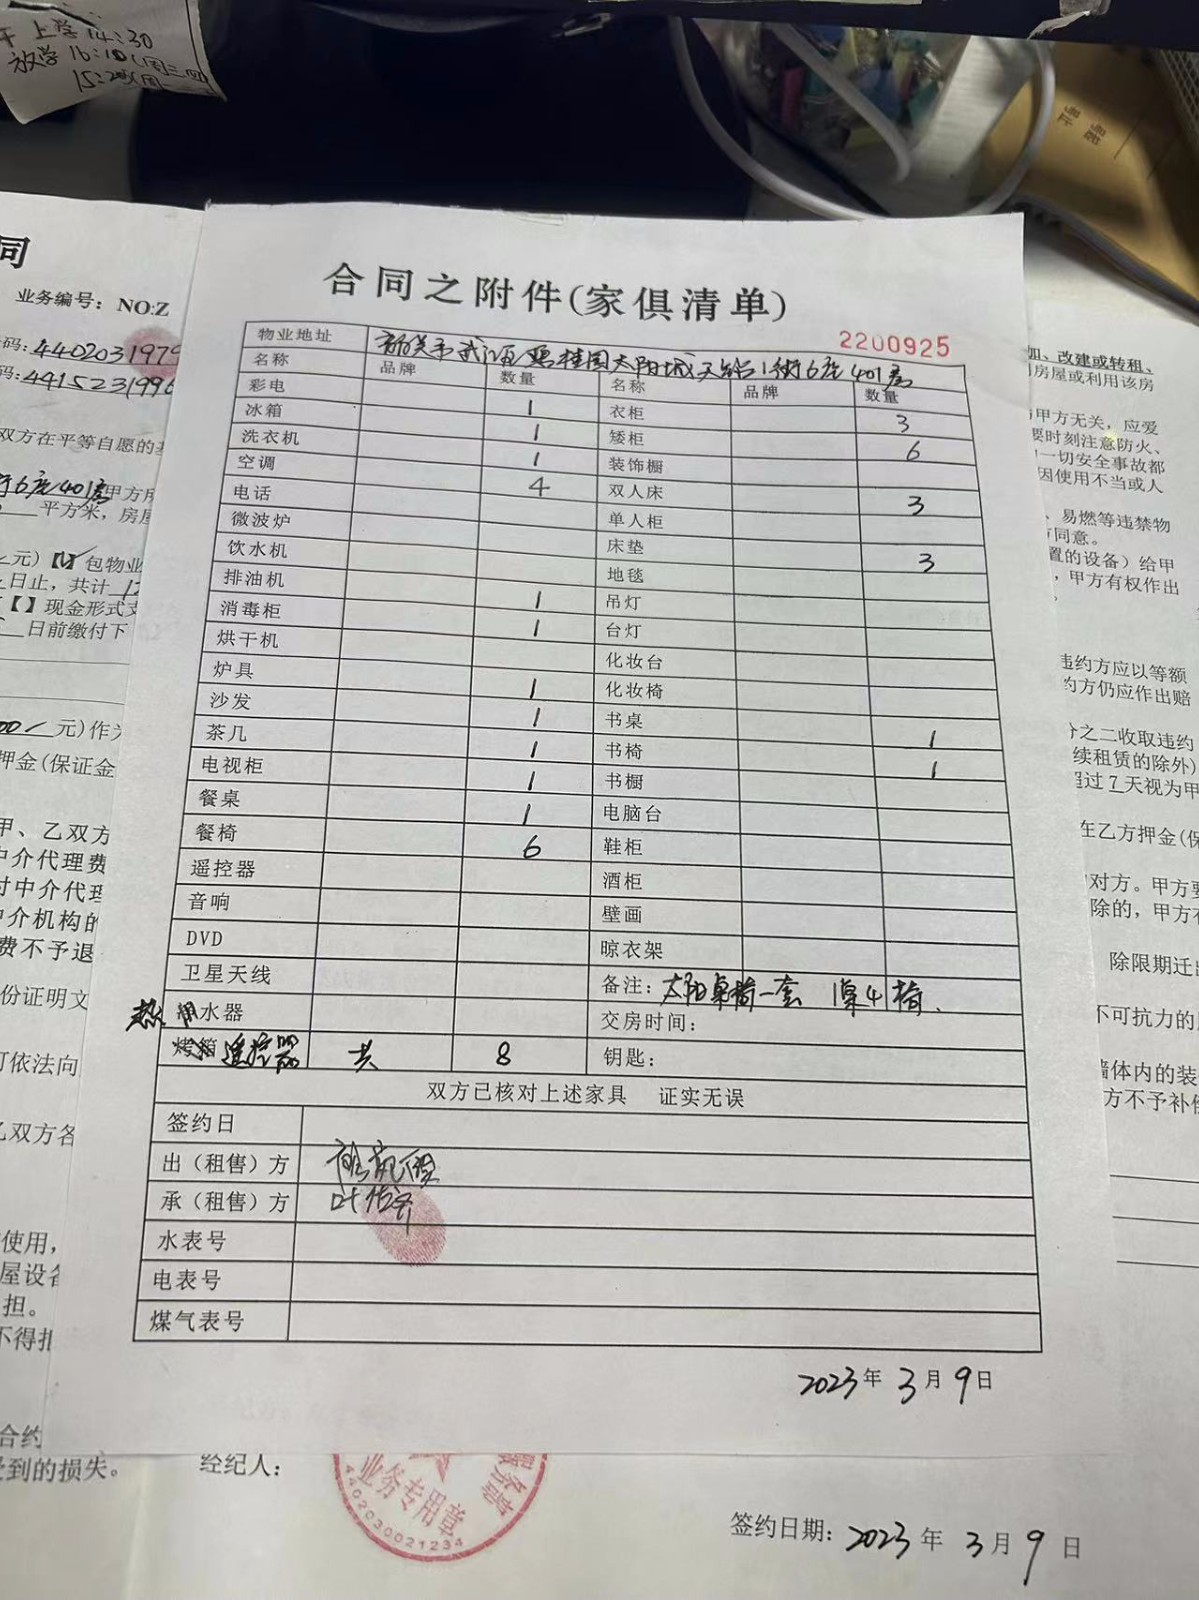 午 上学14:30
放学 16:10(周三四)
15:20(周
同
业务编号: NO:Z
码: 440203197
码: 441523199
双方在平等自愿的基
街6座401房甲方所
平方米,房屋
元)【】包物业
日止,共计 12
【】现金形式支
日前缴付下
元)作为
押金(保证金
甲、乙双方
中介代理费
付中介代理
中介机构的
费不予退
份证明文
可依法向
乙双方各
使用,
屋设备
担。
不得拒
合约
受到的损失。
合同之附件(家俱清单)
2200925
物业地址 韶关市武江区碧桂园太阳城天台1街6座401房
名称 品牌 数量 名称 品牌 数量
彩电 1 衣柜 3
冰箱 1 矮柜 6
洗衣机 1 装饰橱
空调 4 双人床 3
电话 单人柜
微波炉 床垫 3
饮水机 地毯
排油机 1 吊灯
消毒柜 1 台灯
烘干机 化妆台
炉具 1 化妆椅
沙发 1 书桌 1
茶几 1 书椅 1
电视柜 1 书橱
餐桌 1 电脑台
餐椅 6 鞋柜
遥控器 酒柜
音响 壁画
DVD 晾衣架
卫星天线 备注: 太阳桌椅一套 1桌4椅、
热水器 交房时间:
烤箱 遥控器 共 8 钥匙:
双方已核对上述家具 证实无误
签约日
出(租售)方
承(租售)方 叶
水表号
电表号
煤气表号
2023年 3月9日
经纪人:
业务专用章
服务部
4402030021234
签约日期: 2023年 3月9日
加、改建或转租、
用房屋或利用该房
与甲方无关,应爱
要时刻注意防火、
一切安全事故都
因使用不当或人
、易燃等违禁物
方同意。
置的设备)给甲
,甲方有权作出
违约方应以等额
约方仍应作出赔
分之二收取违约
续租赁的除外)
超过7天视为甲
在乙方押金(保
对方。甲方要
除的,甲方有
除限期迁出
不可抗力的
墙体内的装
方不予补偿